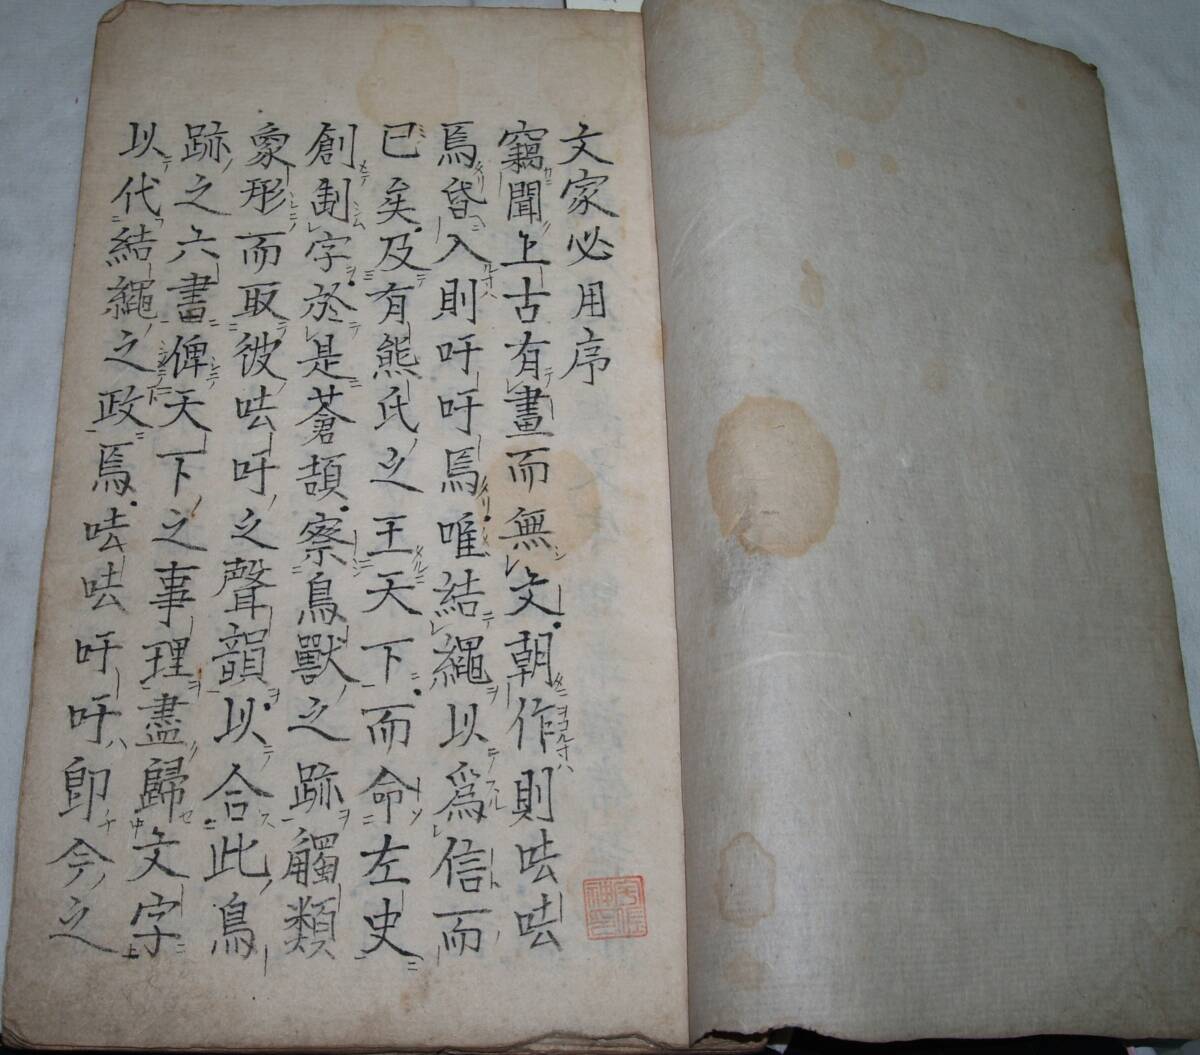 文家必用序
竊聞上古有畫而無文朝作則呿呿
焉昏入則吁吁焉唯結繩以爲信而
已矣及有熊氏之王天下而命左史
創制字於是蒼頡察鳥獸之跡觸類
象形而取彼呿吁之聲韻以合此鳥
跡之六書俾天下之事理盡歸文字
以代結繩之政焉呿呿吁吁即今之